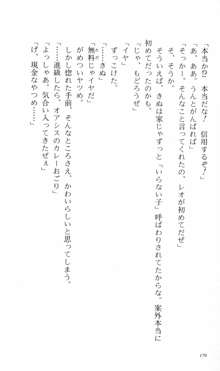 「本当か!　本当だな!　信用するぞ!」
「ああ、うんとがんばれば」
「そっかー、そんなこと言ってくれたの、レオが初めてだぜ」
「そ、そうか」
そういえば、きぬは家じゃずっと「いらない子」呼ばわりされてたからな。案外本当に
初めてだったのかも。
「じゃ、もどろうぜ」
「イヤ」
ずっこけた。
「……きぬ」
「無料じゃイヤだ」
がめついヤツめ……。
しかし惚れた手前、そんなところさえ、かわいらしいと思ってしまう。
「……進級したら、オアシスのカレーおごり」
「よっしゃあ、気合い入ってきたぜぇ」
げ、現金なやつめ……。
170